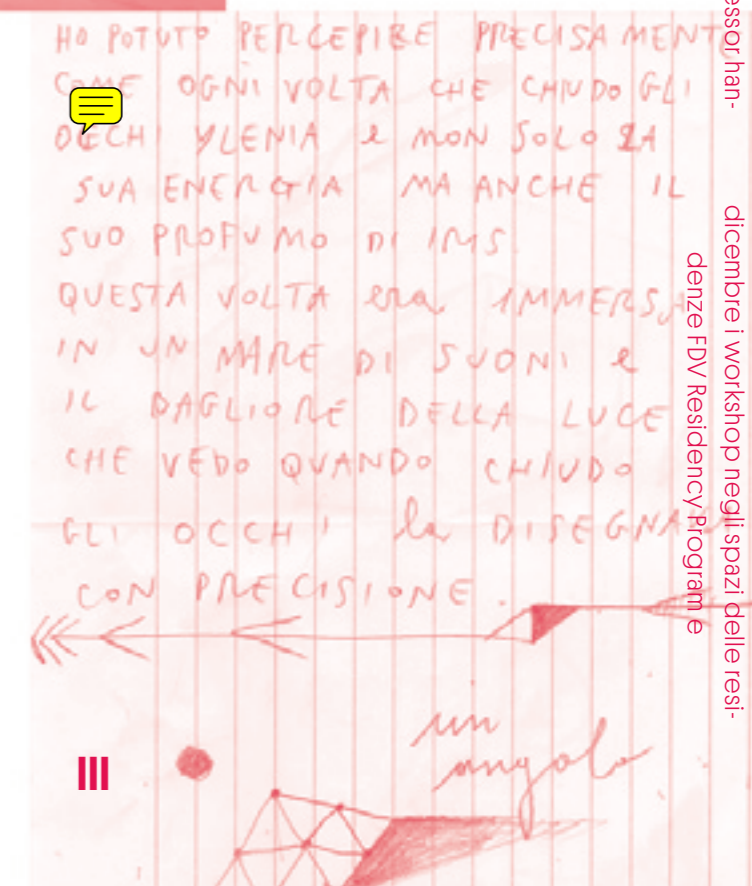 HO POTUTO PERCEPIRE PRECISAMENTE
COME OGNI VOLTA CHE CHIUDO GLI
OCCHI YLENIA e NON SOLO LA
SUA ENERGIA MA ANCHE IL
SUO PROFUMO DI
QUESTA VOLTA era IMMERSA
IN UN MARE DI SUONI e
IL BAGLIORE DELLA LUCE
CHE VEDO QUANDO CHIUDO
GLI OCCHI la
CON PRECISIONE.
un
angolo
III
essor han-
dicembre i workshop negli spazi delle resi-
denze FDV Residency Program e